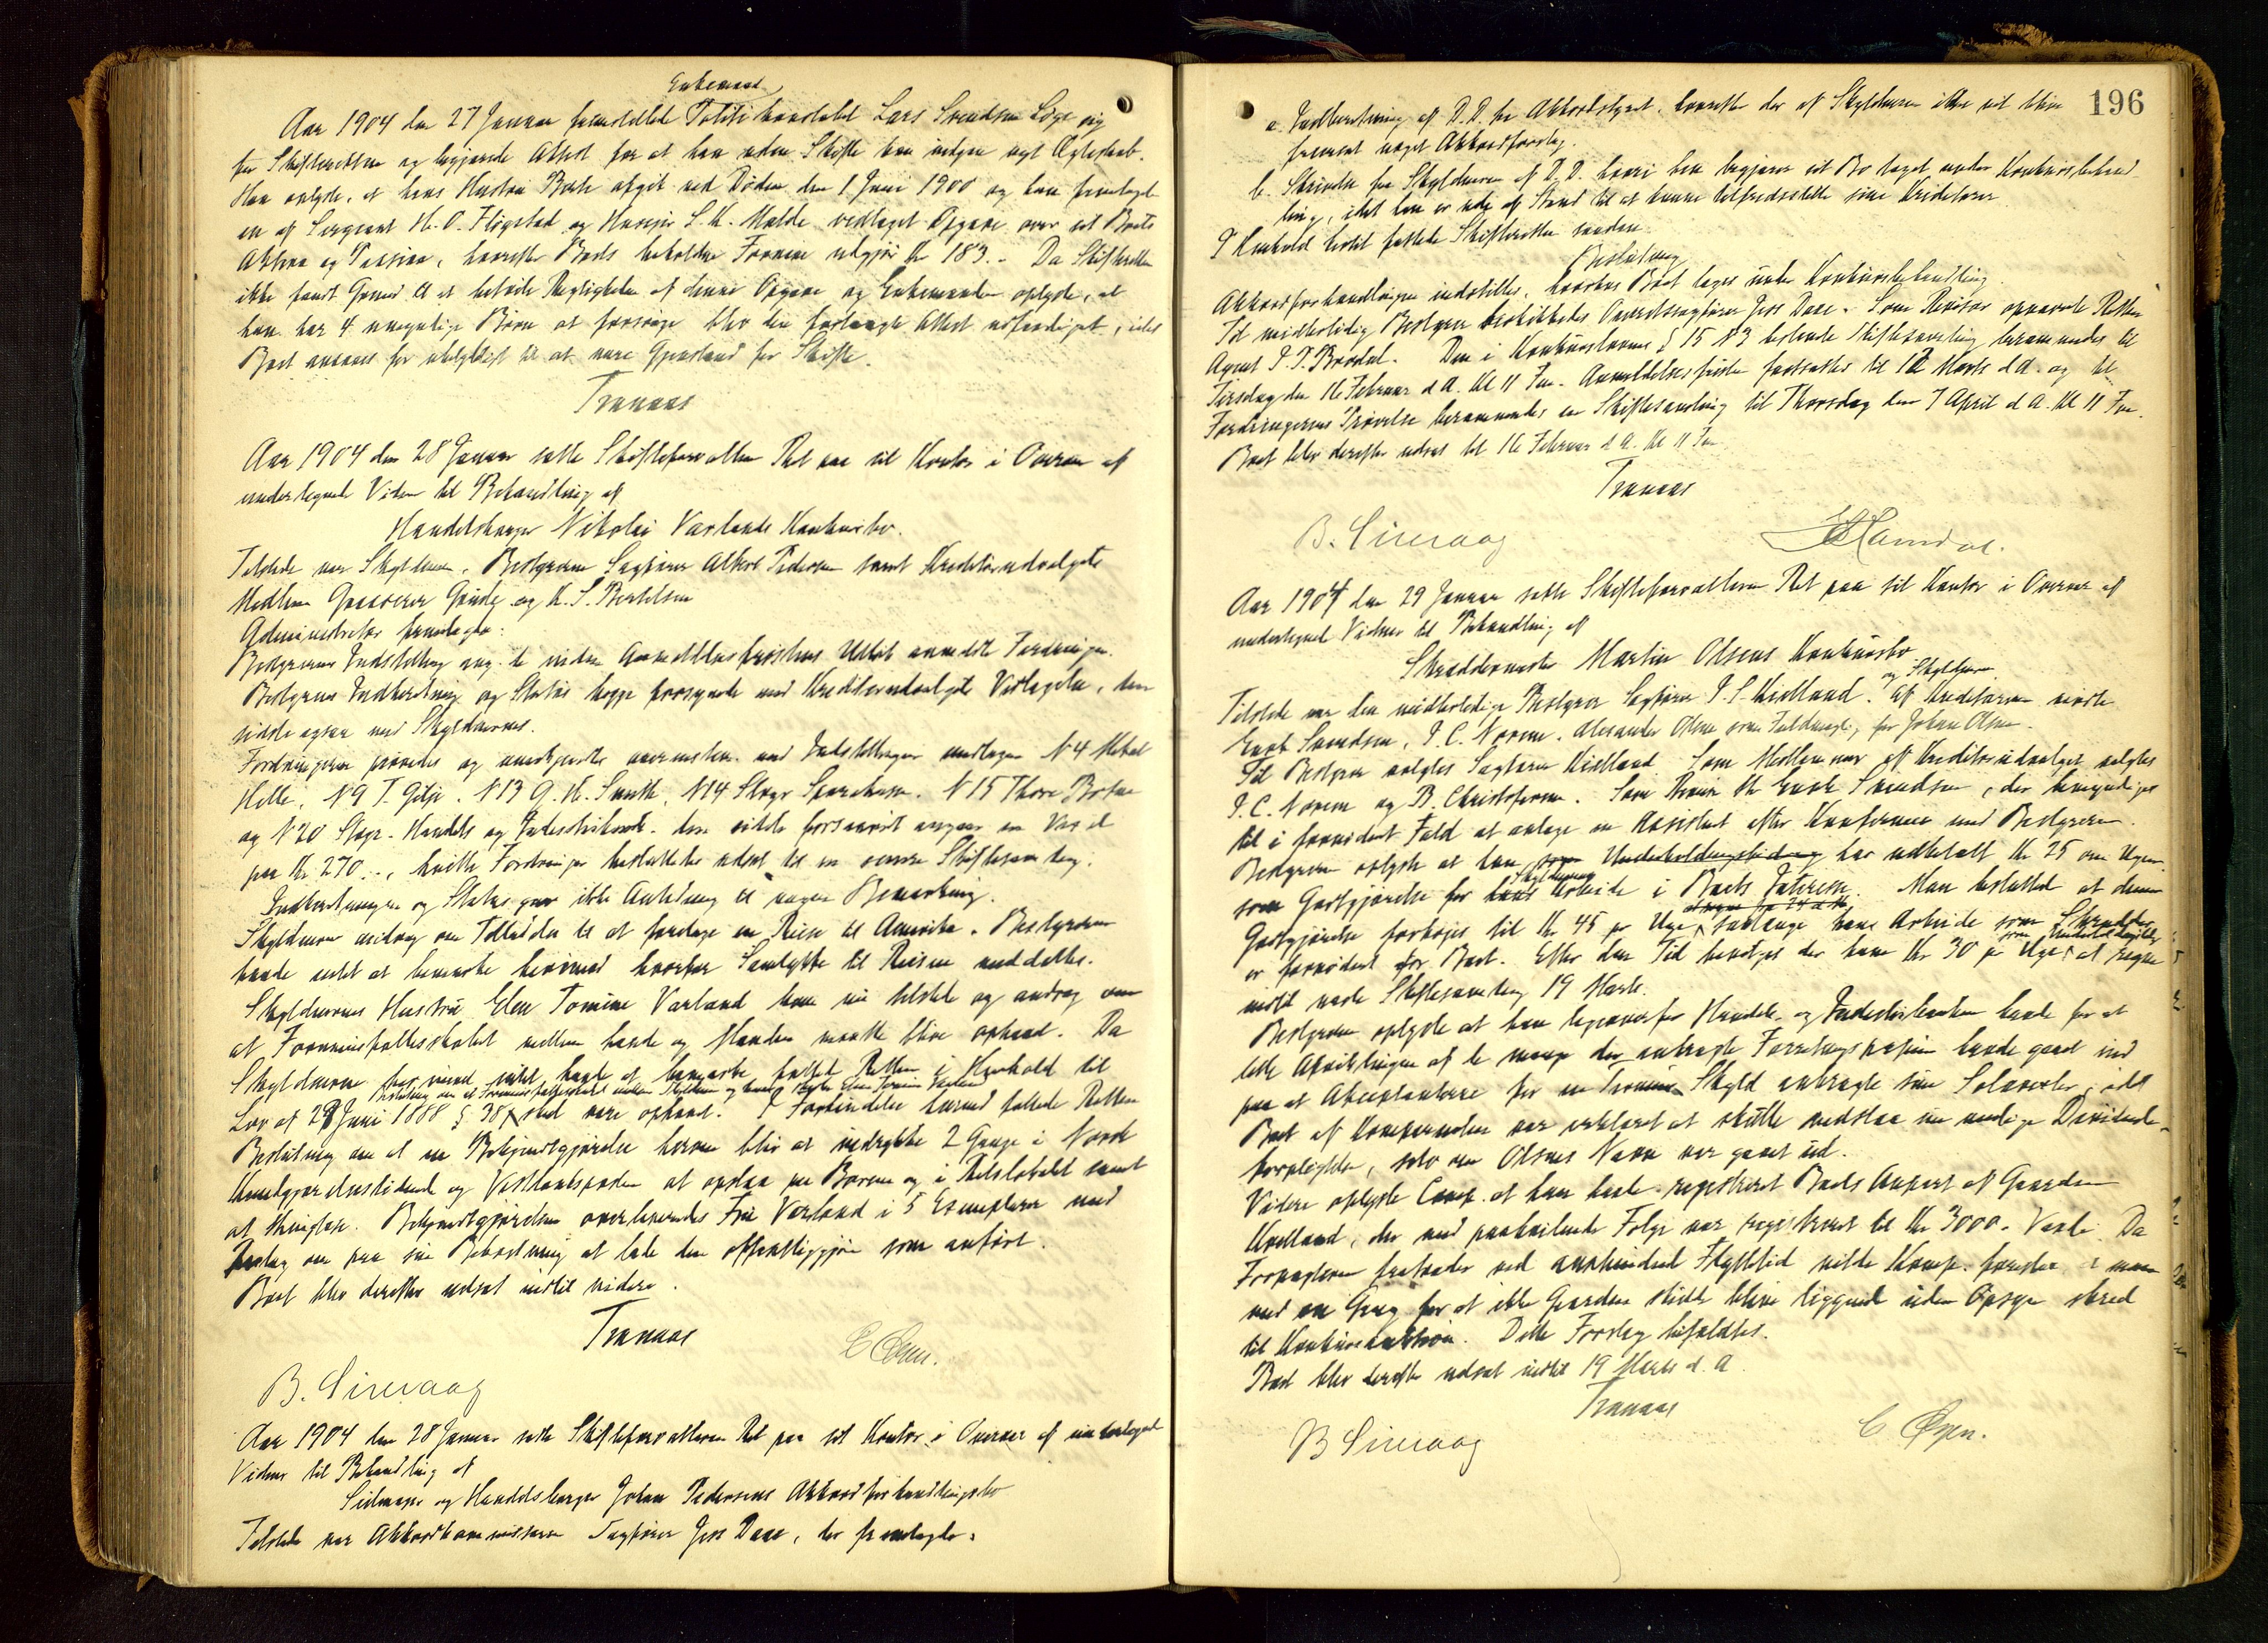 Enkemand
Aar 1904 den 27 Januar fremstillede Politikonstabel Lars Svendsen Løge sig
for Skifteretten og begjærede Attest for at han uden Skifte kan indgaa nyt Ægteskab.
Han oplyste, at hans Hustru Berte afgik ved Døden den 1 Juni 1900 og han fremlagde
en af Sergeant H. O. Fligstad og Huseier S. K. Malde vedtaget Opgave over sit Boets
Aktiva og Passiva, hvorefter Boets beholdne Formue udgjør Kr 183.- Da Skifteretten
ikke fandt Grund til at betvile Rigtigheden af denne Opgave og Enkemanden oplyste, at
han har 4 umyndige Børn at forsørge blev den forlangte Attest udfærdiget, idet
Boet ansees for ubetydeligt til at være Gjenstand for Skifte.
Tranaas
Aar 1904 den 28 Januar satte Skifteforvalteren Ret paa sit Kontor i Overvær af
undertegnede Vidner til Behandling af
Handelsborger Nikolai Varlands Konkursbo.
Tilstede var Skyldneren, Bestyreren Sagfører Albert Pedersen samt Kreditorudvalgets
Medlem Grosserer Grude og K. S. Bertelsen
Administrator fremlagde:
Bestyrerens Indstilling ang. de inden Anmeldelsesfristens Udløb anmeldte Fordringer.
Bestyrerens Indberetning og Status begge forsynede med Kreditorudvalgets Vedtagelse, den
sidste ogsaa med Skyldnerens.
Fordringerne prøvedes og anerkjendtes overensstem. med Indstillingen undtagen N 4 Mikal
Helle, N 9 T. Gilje, N 13 G. H. Smith, N 14 Stavgr Sparekasse, N 15 Thore Botne
og N 20 Stavgr. Handels og Industribank, den sidste forsaavidt angaar en Vexel
paa Kr 270.-, hvilke Fordringer besluttedes udsat til en senere Skiftesamling.
Indberetningen og Status gav ikke Anledning til nogen Bemærkning.
Skyldneren androg om Tilladelse til at foretage en Reise til Amerika. Bestyreren
havde intet at bemærke herimod hvorfor Samtykke til Reisen meddeltes.
Skyldnerens Hustru Elen Tomine Varland kom nu tilstede og androg om
at Formuesfællesskabet mellem hende og Manden maatte blive ophævet. Da
Skyldneren herimod intet havde at bemærke fattet Retten i Henhold til
Beslutning om at Formuesfællesskabet mellem Skyldneren og hans Hustru Elen Tomine Varland
Lov af 29 Juni 1888 § 38 skal være ophævet. I Forbindelse hermed fattede Retten
Beslutning om at en Bekjendtgjørelse herom blev at indrykke 2 Gange i Norsk
Kundgjørelsestidende og Vestlandsposten at opslaa paa Børsen og i Retslokalet samt
at thinglæse. Bekjendtgjørelsen overleveredes Fru Varland i 5 Exemplarer med
Paalæg om paa sin Bekostning at lade den offentliggjøre som anført.
Boet blev derefter udsat indtil videre.
Tranaas
C Øgen.
B. Sirevaag
Aar 1904 den 28 Januar satte Skifteforvalteren Ret paa sit Kontor i Overvær af undertegnede
Vidner til Behandling af
Seilmager og Handelsborger Johan Pedersens Akkordforhandlingsbo
Tilstede var Akkordkommissæren Sagfører Jess Daae, der fremlagde:
196
a. Indberetning af D.D. fra Akkordstyret, hvorefter der af Skyldneren ikke vil blive
fremsat noget Akkordforslag.
b. Skrivelse fra Skyldneren af D.D. hvori han begjærer sit Bo taget under Konkursbehand
ling, idet han er ude af Stand til at kunne tilfredsstille sine Kreditorer.
I Henhold hertil fattede Skifteretten saadan
Beslutning
Akkordforhandlingen indstilles, hvorhos Boet tages under Konkursbehandling
Til midlertidig Bestyrer beskikkedes Overretssagfører Jess Daae. Som Revisor opnævnte Retten
Agent P. T. Brodal. Den i Konkurslovens § 15 N 3 bestemte Skiftesamling berammedes til
Tirsdag den 16 Februar d A. Kl 11 Fm. Anmeldelsesfristen fastsattes til 12 Marts d A. og til
Fordringernes Prøvelse berammedes en Skiftesamling til Thorsdag den 7 April d A. Kl 11 Fm.
Boet blev derefter udsat til 16 Februar d A. Kl 11 Fm
Tranaas
B. Sirevaag
Aar 1904 den 29 Januar satte Skifteforvalteren Ret paa sit Kontor i Overvær af
undertegnede Vidner til Behandling af
Skræddermester Martin Olsens Konkursbo
og Skyldneren
Tilstede var den midlertidige Bestyrer Sagfører J. S. Kielland. Af Kreditorerne mødte
Enok Svendsen, P. C. Noreen, Alexander Olsen som Fuldmægtig for Johan Olsen.
Til Bestyrer valgtes Sagfører Kielland. Som Medlemmer af Kreditorudvalget valgtes
P. C. Noreen og B. Christophersen. Som Revisor Hr Enok Svendsen, der bemyndiges
til i fornødent Fald at antage en Assistent efter Konference med Bestyreren.
Bestyreren oplyste at han som Underholdningsbidrag har udbetalt Kr 25 om Ugen
Skyldnerens
som Godtgjørelse for hans Arbeide i Boets Interesse. Man besluttede at denne
at regne fra 24 d M
Godtgjørelse forhøies til Kr 45 pr Uge, saalænge hans Arbeide som Skrædder
som Underholdningsbidrag
er fornødent for Boet. Efter den Tid bevilges der ham Kr 30 pr Uge at regne
indtil næste Skiftesamling 19 Marts.
Bestyreren oplyste at han ligeoverfor Handels- og Industribanken havde for at
lette Afviklingen af de mange der antagte Forretningspapirer havde gaaet ind
paa at Akceptanterne for en Termins Skyld antagte sine Solavexler, idet
Boet af Komparenten var erklæret at skulle vedstaa sin mulige Dividende-
forpligtelse, selv om Olsens Navn var gaaet ud.
Videre oplyste Comp. at han havde registreret Boets Anpart af Gaarden
Kvelland, der med paahvilende Følge var registreret til Kr 3000.- Værdi. Da
Forpagteren fratræder ved anstundende Flyttetid vilde Komp. foreslaa at man
med en Gang for at ikke Gaarden skulde blive liggende uden Opsyn skred
til Konkursauktion. Dette Forslag bifaldtes.
Boet blev derefter udsat indtil 19 Marts d. A.
Tranaas
C Øgen.
B Sirevaag